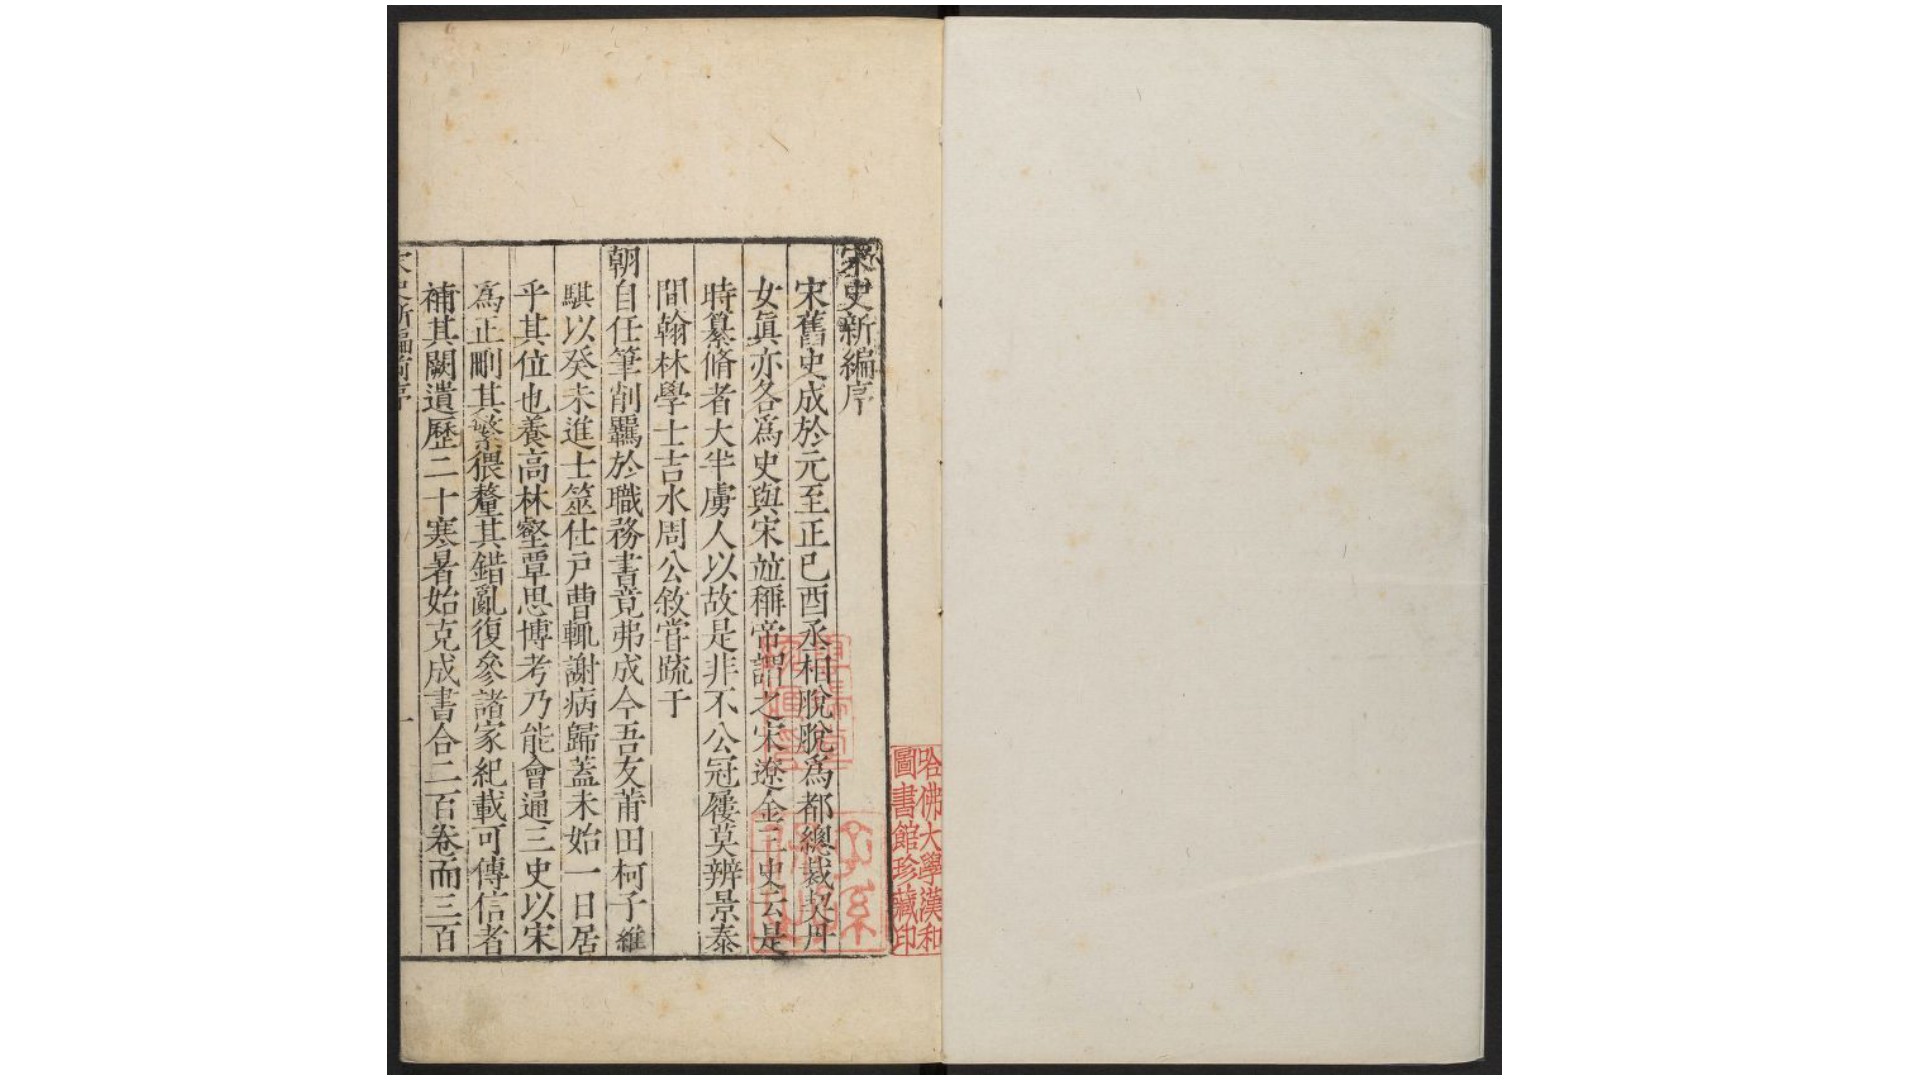 宋史新編序
宋舊史成於元至正己酉丞相脫脫爲都總裁契丹
女眞亦各爲史與宋並稱帝謂之宋遼金三史云是
時纂脩者大半虜人以故是非不公冠屨莫辨景泰
間翰林學士吉水周公敘嘗疏于
朝自任筆削羈於職務書竟弗成今吾友莆田柯子維
騏以癸未進士筮仕戸曹輒謝病歸蓋未始一日居
乎其位也養高林壑覃思博考乃能會通三史以宋
爲正刪其繁猥釐其錯亂復參諸家紀載可傳信者
補其闕遺歷二十寒暑始克成書合二百卷而三百
宋史新編前序
一
哈佛大學漢和
圖書館珍藏印